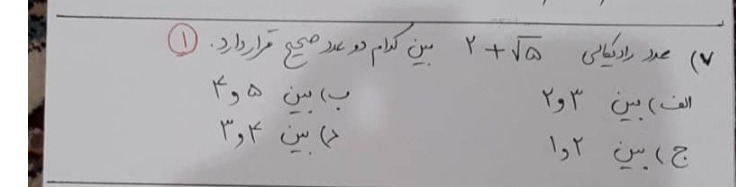 ۷) عدد رادیکالی ۲ + √۵ بین کدام دو عدد صحیح قرار دارد. ①
الف) بین ۳ و ۲ ب) بین ۵ و ۴
ج) بین ۲ و ۱ د) بین ۴ و ۳